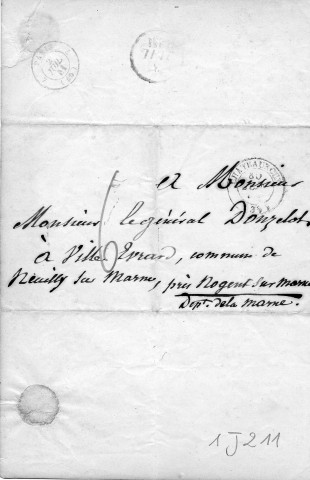 A Monsieur
Monsieur le général Donzelot
à Ville Evrard, commune de
Neuilly sur Marne, près Nogent sur marne
Dépt. de la marne.
6
1 J 211